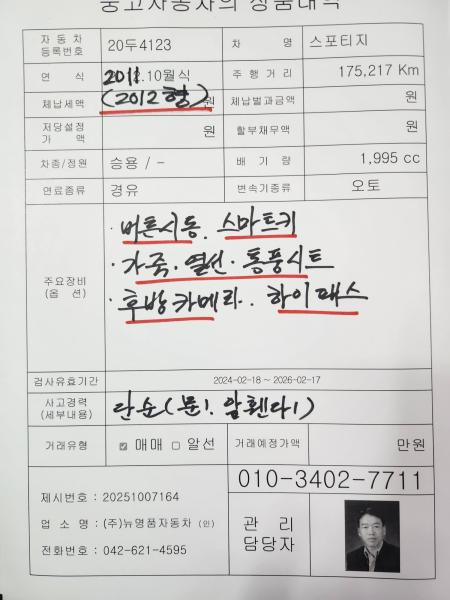 중고자동차의 상품내역
자 동 차 등록번호 20두4123 차 명 스포티지
연 식 2011.10월식 주 행 거 리 175,217 Km
체납세액 (2012형) 원 체납벌과금액 원
저당설정 가 액 원 할부채무액 원
차종/정원 승용 / - 배 기 량 1,995 cc
연료종류 경유 변속기종류 오토
· 버튼시동. 스마트키
· 가죽·열선·통풍시트
주요장비 (옵 션) · 후방카메라. 하이패스
검사유효기간 2024-02-18 ~ 2026-02-17
사고경력 (세부내용) 단순(문1. 앞휀다1)
거래유형 ☑ 매매 □ 알선 거래예정가액 만원
010-3402-7711
제시번호 : 20251007164
업 소 명 : (주)뉴명품자동차 (인) 관 리 담당자
전화번호 : 042-621-4595